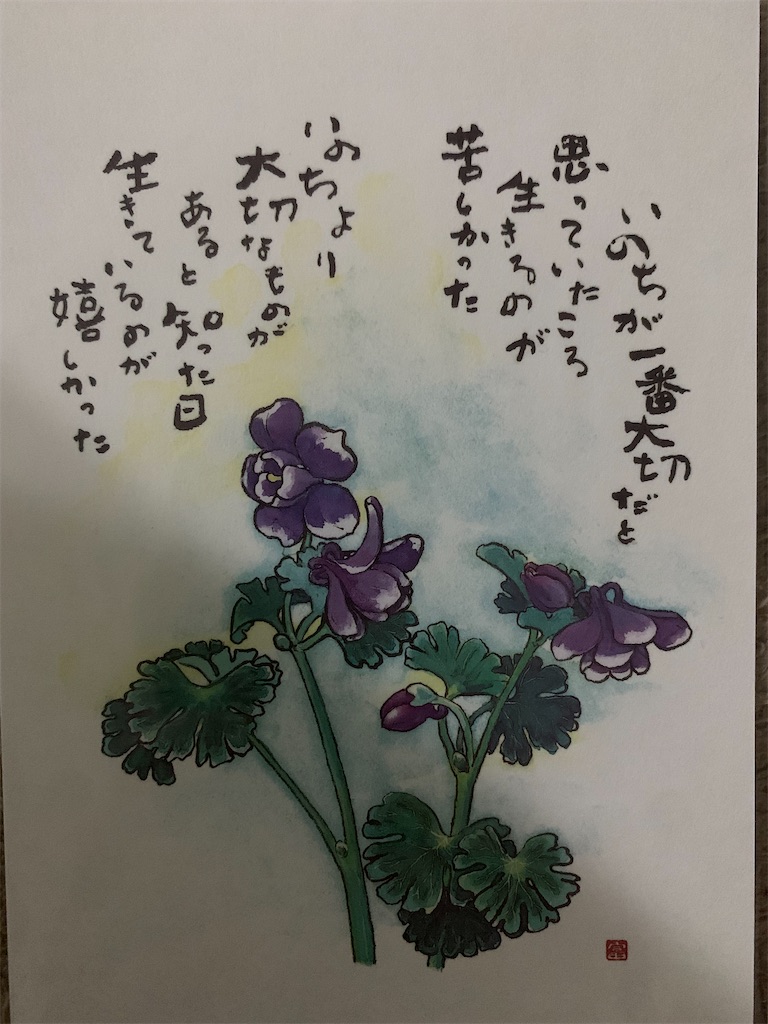 いのちが一番大切だと
思っていたころ
生きるのが
苦しかった
いのちより
大切なものが
あると知った日
生きているのが
嬉しかった
富